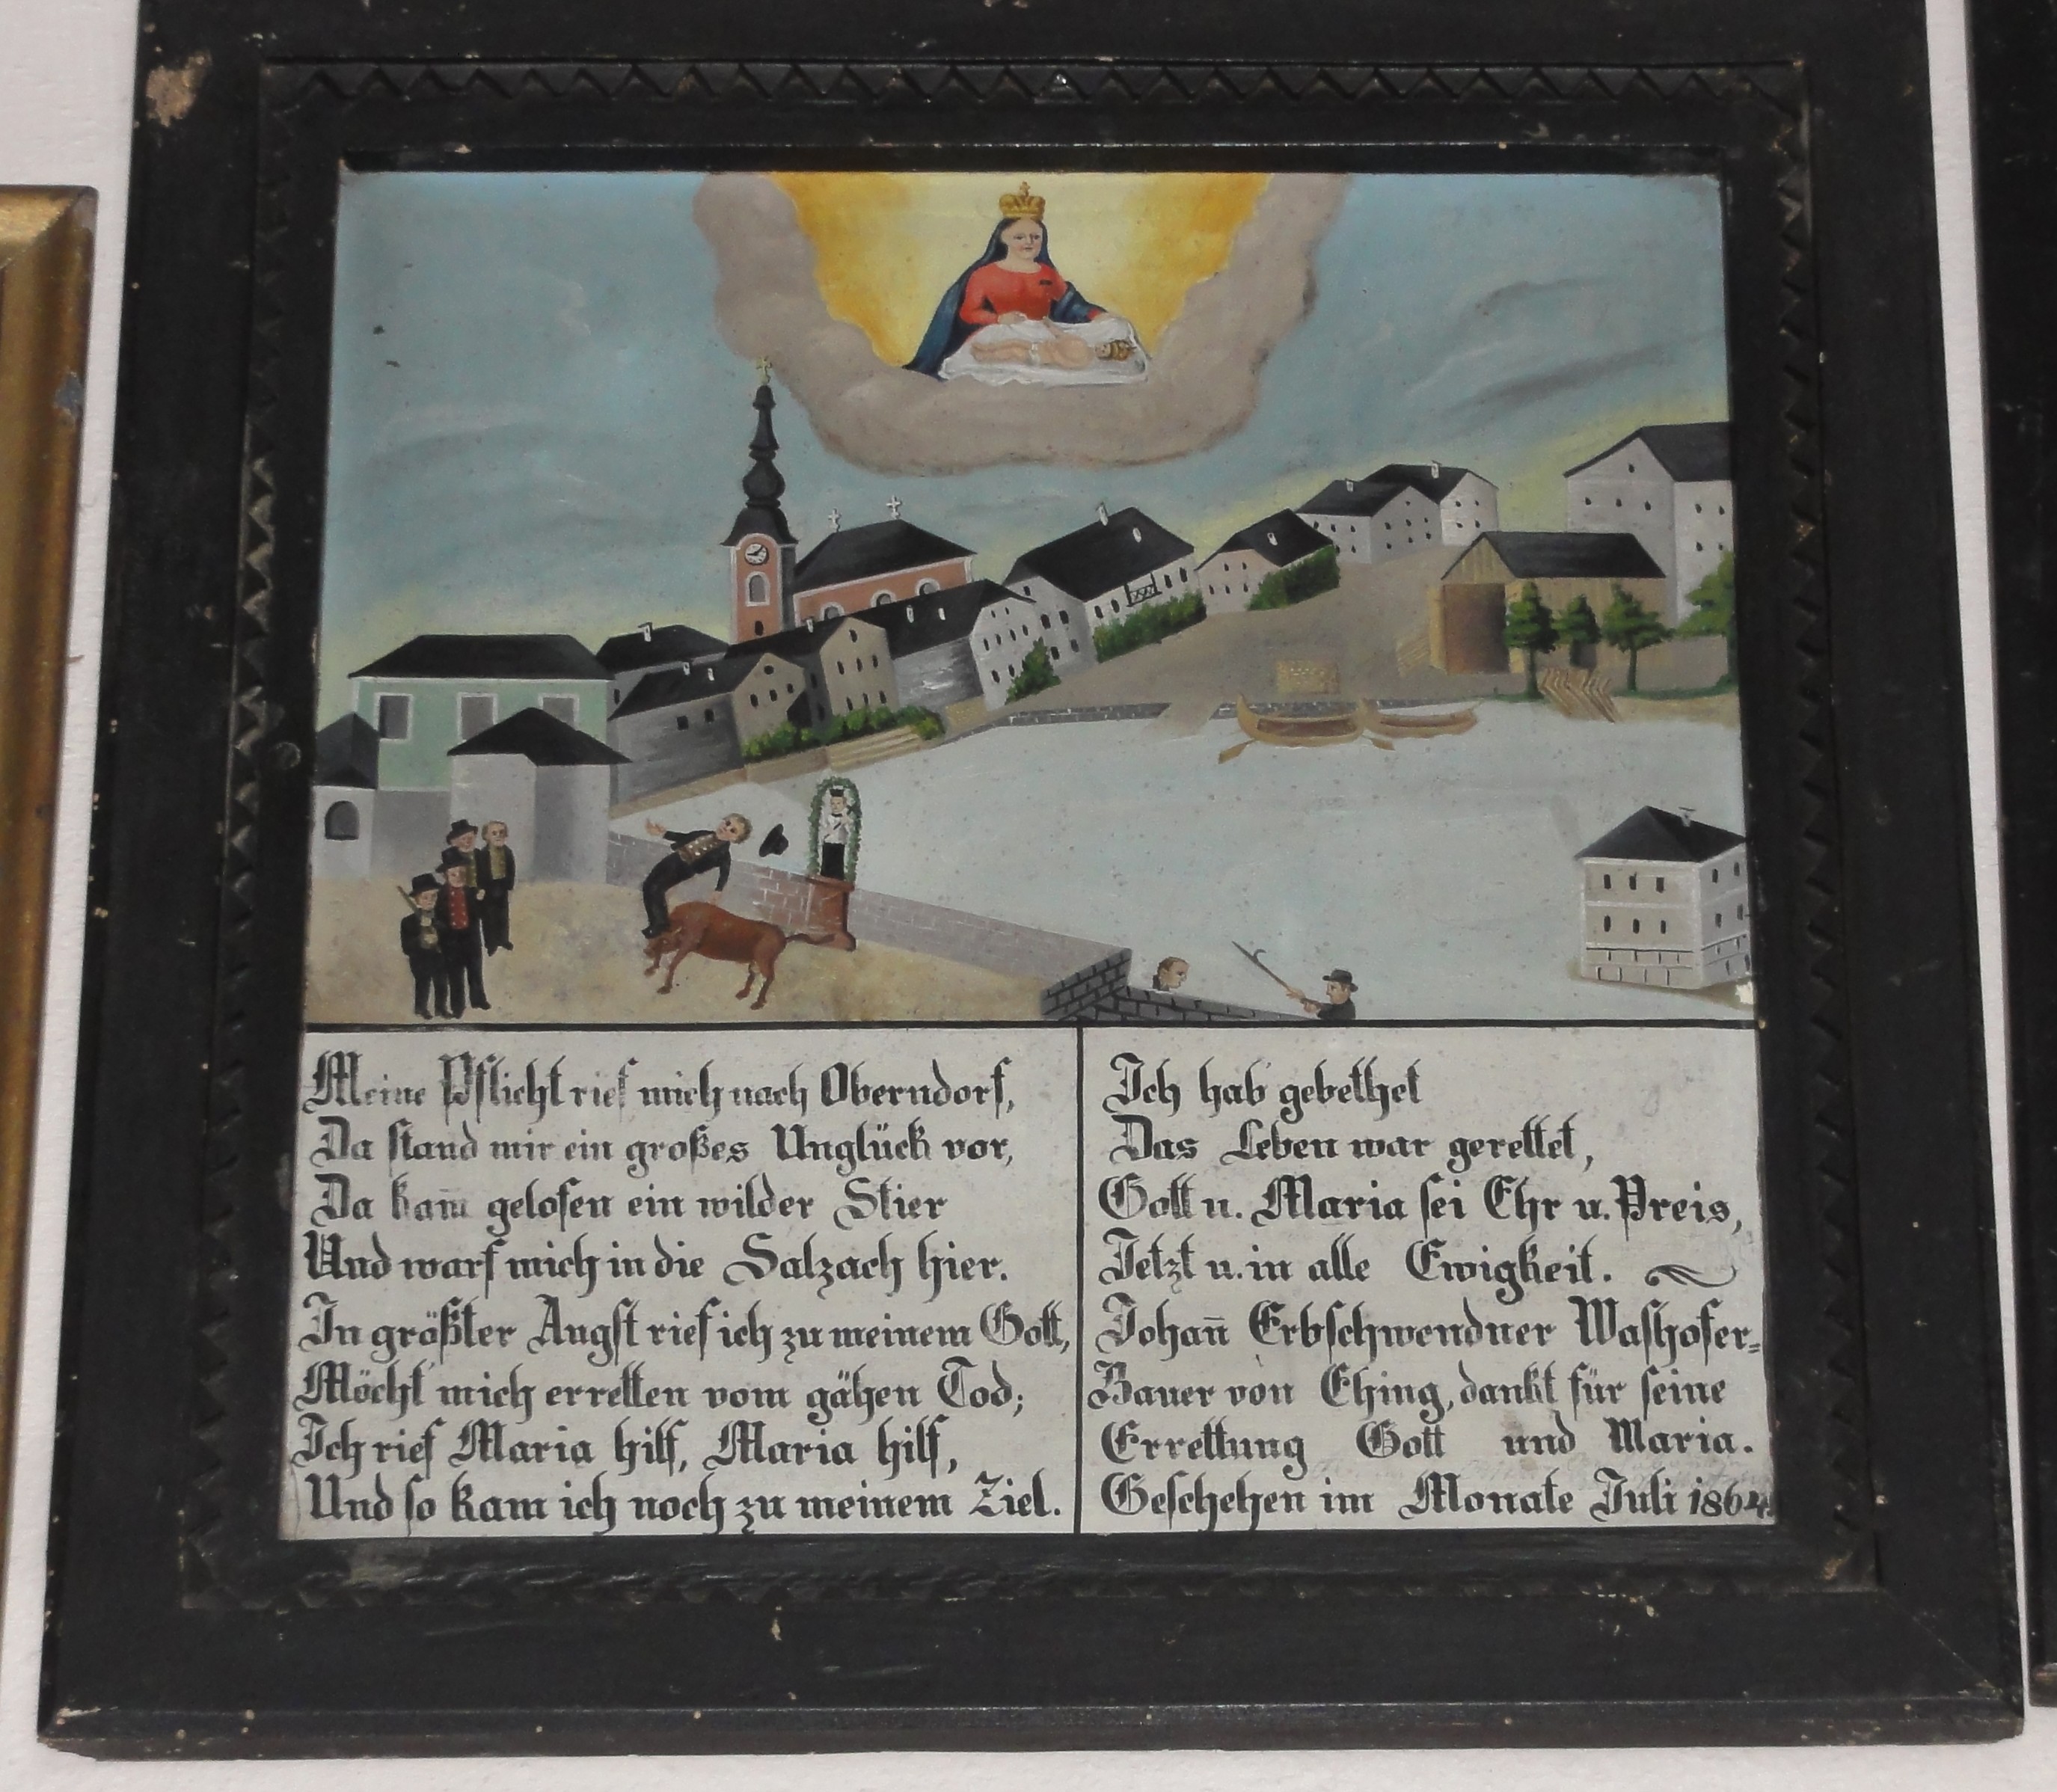 Meine Pflicht rief mich nach Oberndorf,
Da stand mir ein großes Unglück vor,
Da kam̄ gelofen ein wilder Stier
Und warf mich in die Salzach hier.
In größter Angst rief ich zu meinem Gott,
Möcht' mich erretten vom gähen Tod;
Ich rief Maria hilf, Maria hilf,
Und so kam ich noch zu meinem Ziel.
Ich hab' gebethet
Das Leben war gerettet,
Gott u. Maria sei Ehr u. Preis,
Jetzt u. in alle Ewigkeit.
Johan̄ Erbschwendner Washofer=
Bauer von Eching, dankt für seine
Errettung Gott und Maria.
Geschehen im Monate Juli 1864.